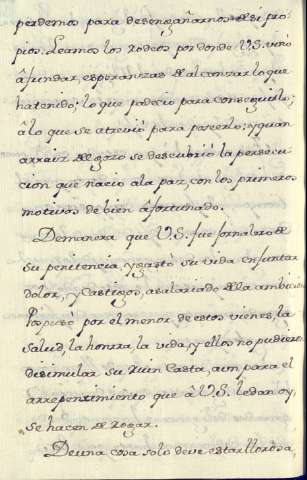 perdemos para desengañarnos de si pro
pios. Leamos los rodeos por donde V.S. vino
â fundar, esperanzas de al canzar lo que
ha tenido; lo que padecio para conseguirlo;
â lo que se atreviò para poseerlo; y quan
arraiz del gozo se descubriò la persecu
cion que nacio ala paz, con los primeros
motivos de bien âfortunado.
Demanera que V.S. fue jornalero de
su penitencia, y gastò su vida en juntar
dolor, y Castigos, asalariado de la ambicion
Pospuso por el menor de estos vienes, la
salud, la honrra, la vida, y ellos no pudieron
disimular su ruin Casta, aun para el
arrepentimiento que â V.S. le dan oy,
se hacen de rogar.
Deuna cosa solo deve estar llorosa,